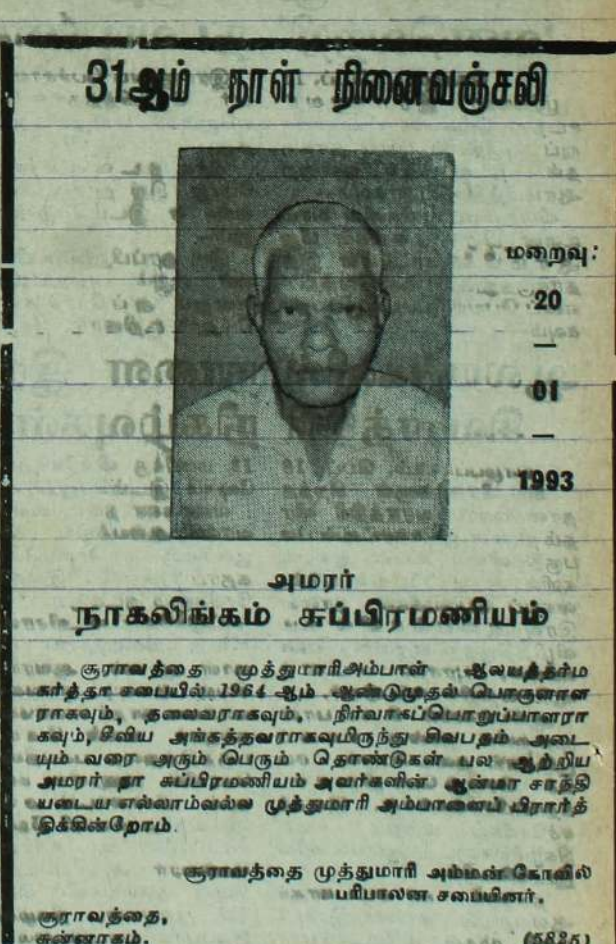 31ஆம் நாள் நினைவஞ்சலி
மறைவு:
20
—
01
—
1993
அமரர்
நாகலிங்கம் சுப்பிரமணியம்
சூராவத்தை முத்துமாரிஅம்பாள் ஆலயத்தர்ம
கர்த்தா சபையில் 1964 ஆம் ஆண்டுமுதல் பொருளாள
ராகவும், தலைவராகவும், நிர்வாகப்பொறுப்பாளரா
கவும், சீவிய அங்கத்தவராகவுமிருந்து சிவபதம் அடை
யும் வரை அரும் பெரும் தொண்டுகள் பல ஆற்றிய
அமரர் நா சுப்பிரமணியம் அவர்களின் ஆன்மா சாந்தி
யடைய எல்லாம்வல்ல முத்துமாரி அம்பாளைப் பிரார்த்
திக்கின்றோம்.
சூராவத்தை முத்துமாரி அம்மன் கோவில்
பரிபாலன சபையினர்.
சூராவத்தை,
சுன்னாகம்.
(5825)